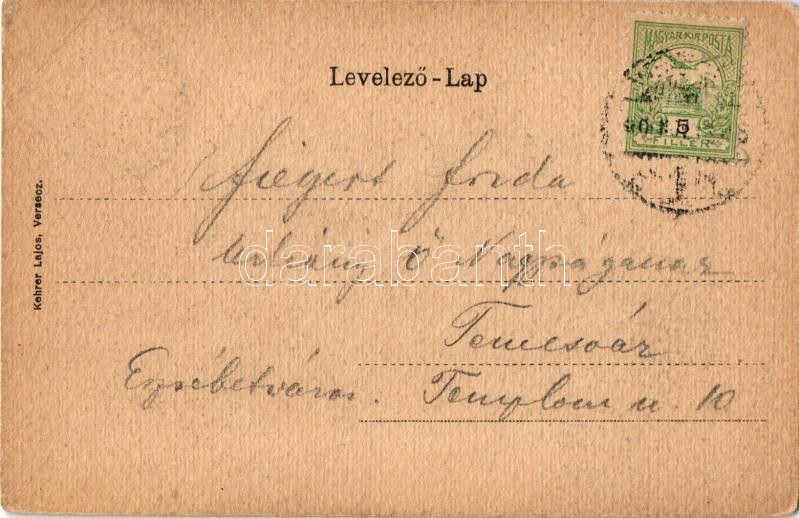 MAGYAR KIR. POSTA
5
FILLÉR
Levelező-Lap
Kehrer Lajos, Versecz.
Siegert Frida
ő Nagyságának
Temesvár
Erzsébetváros. Templom u. 10
darabanth